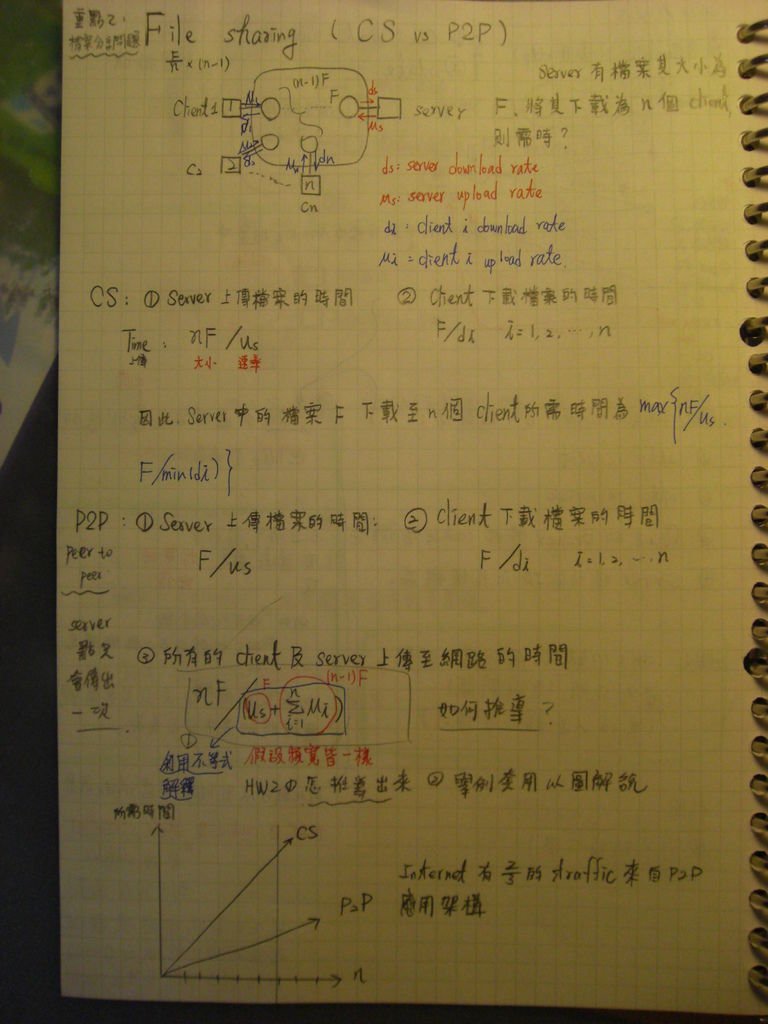 重點2:
檔案分享問題
File sharing ( CS vs P2P )
(n-1)F
F
Client 1
1
server
ds
us
Server 有檔案其大小為
F、將其下載為 n 個 client,
則需時?
C2
2
n
Cn
dn
ds: server download rate
us: server upload rate
di: client i download rate
ui = client i upload rate.
CS: ① Server 上傳檔案的時間
② Client 下載檔案的時間
Time
上傳
: nF/us
大小 速率
F/di i=1,2,…,n
因此, Server 中的檔案 F 下載至 n 個 client 所需時間為 max{nF/us,
F/min(di)}
P2P: ① Server 上傳檔案的時間:
② Client 下載檔案的時間
peer to
peer
F/us
F/di i=1,2,…,n
server
會傳出
一次
③ 所有的 client 及 server 上傳至網路的時間
F
(n-1)F
nF/(us+Σui)
n
i=1
如何推導?
①
利用不等式
解釋
假設頻寬皆一樣
HW2 ① 怎推導出來 ② 舉例並用以圖解說
所需時間
CS
P2P
n
Internet 有 的 traffic 來自 P2P
應用架構